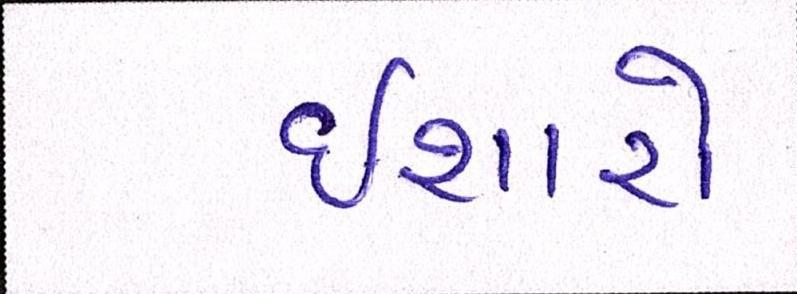 ઈશારો